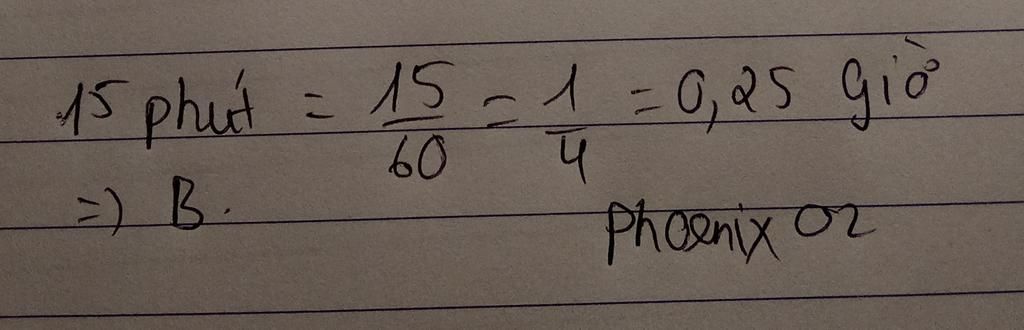 15 phút = 15/60 = 1/4 = 0,25 Giờ
=) B.
Phoenix 02